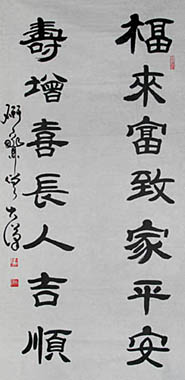 福來富致家平安
壽增喜長人吉順